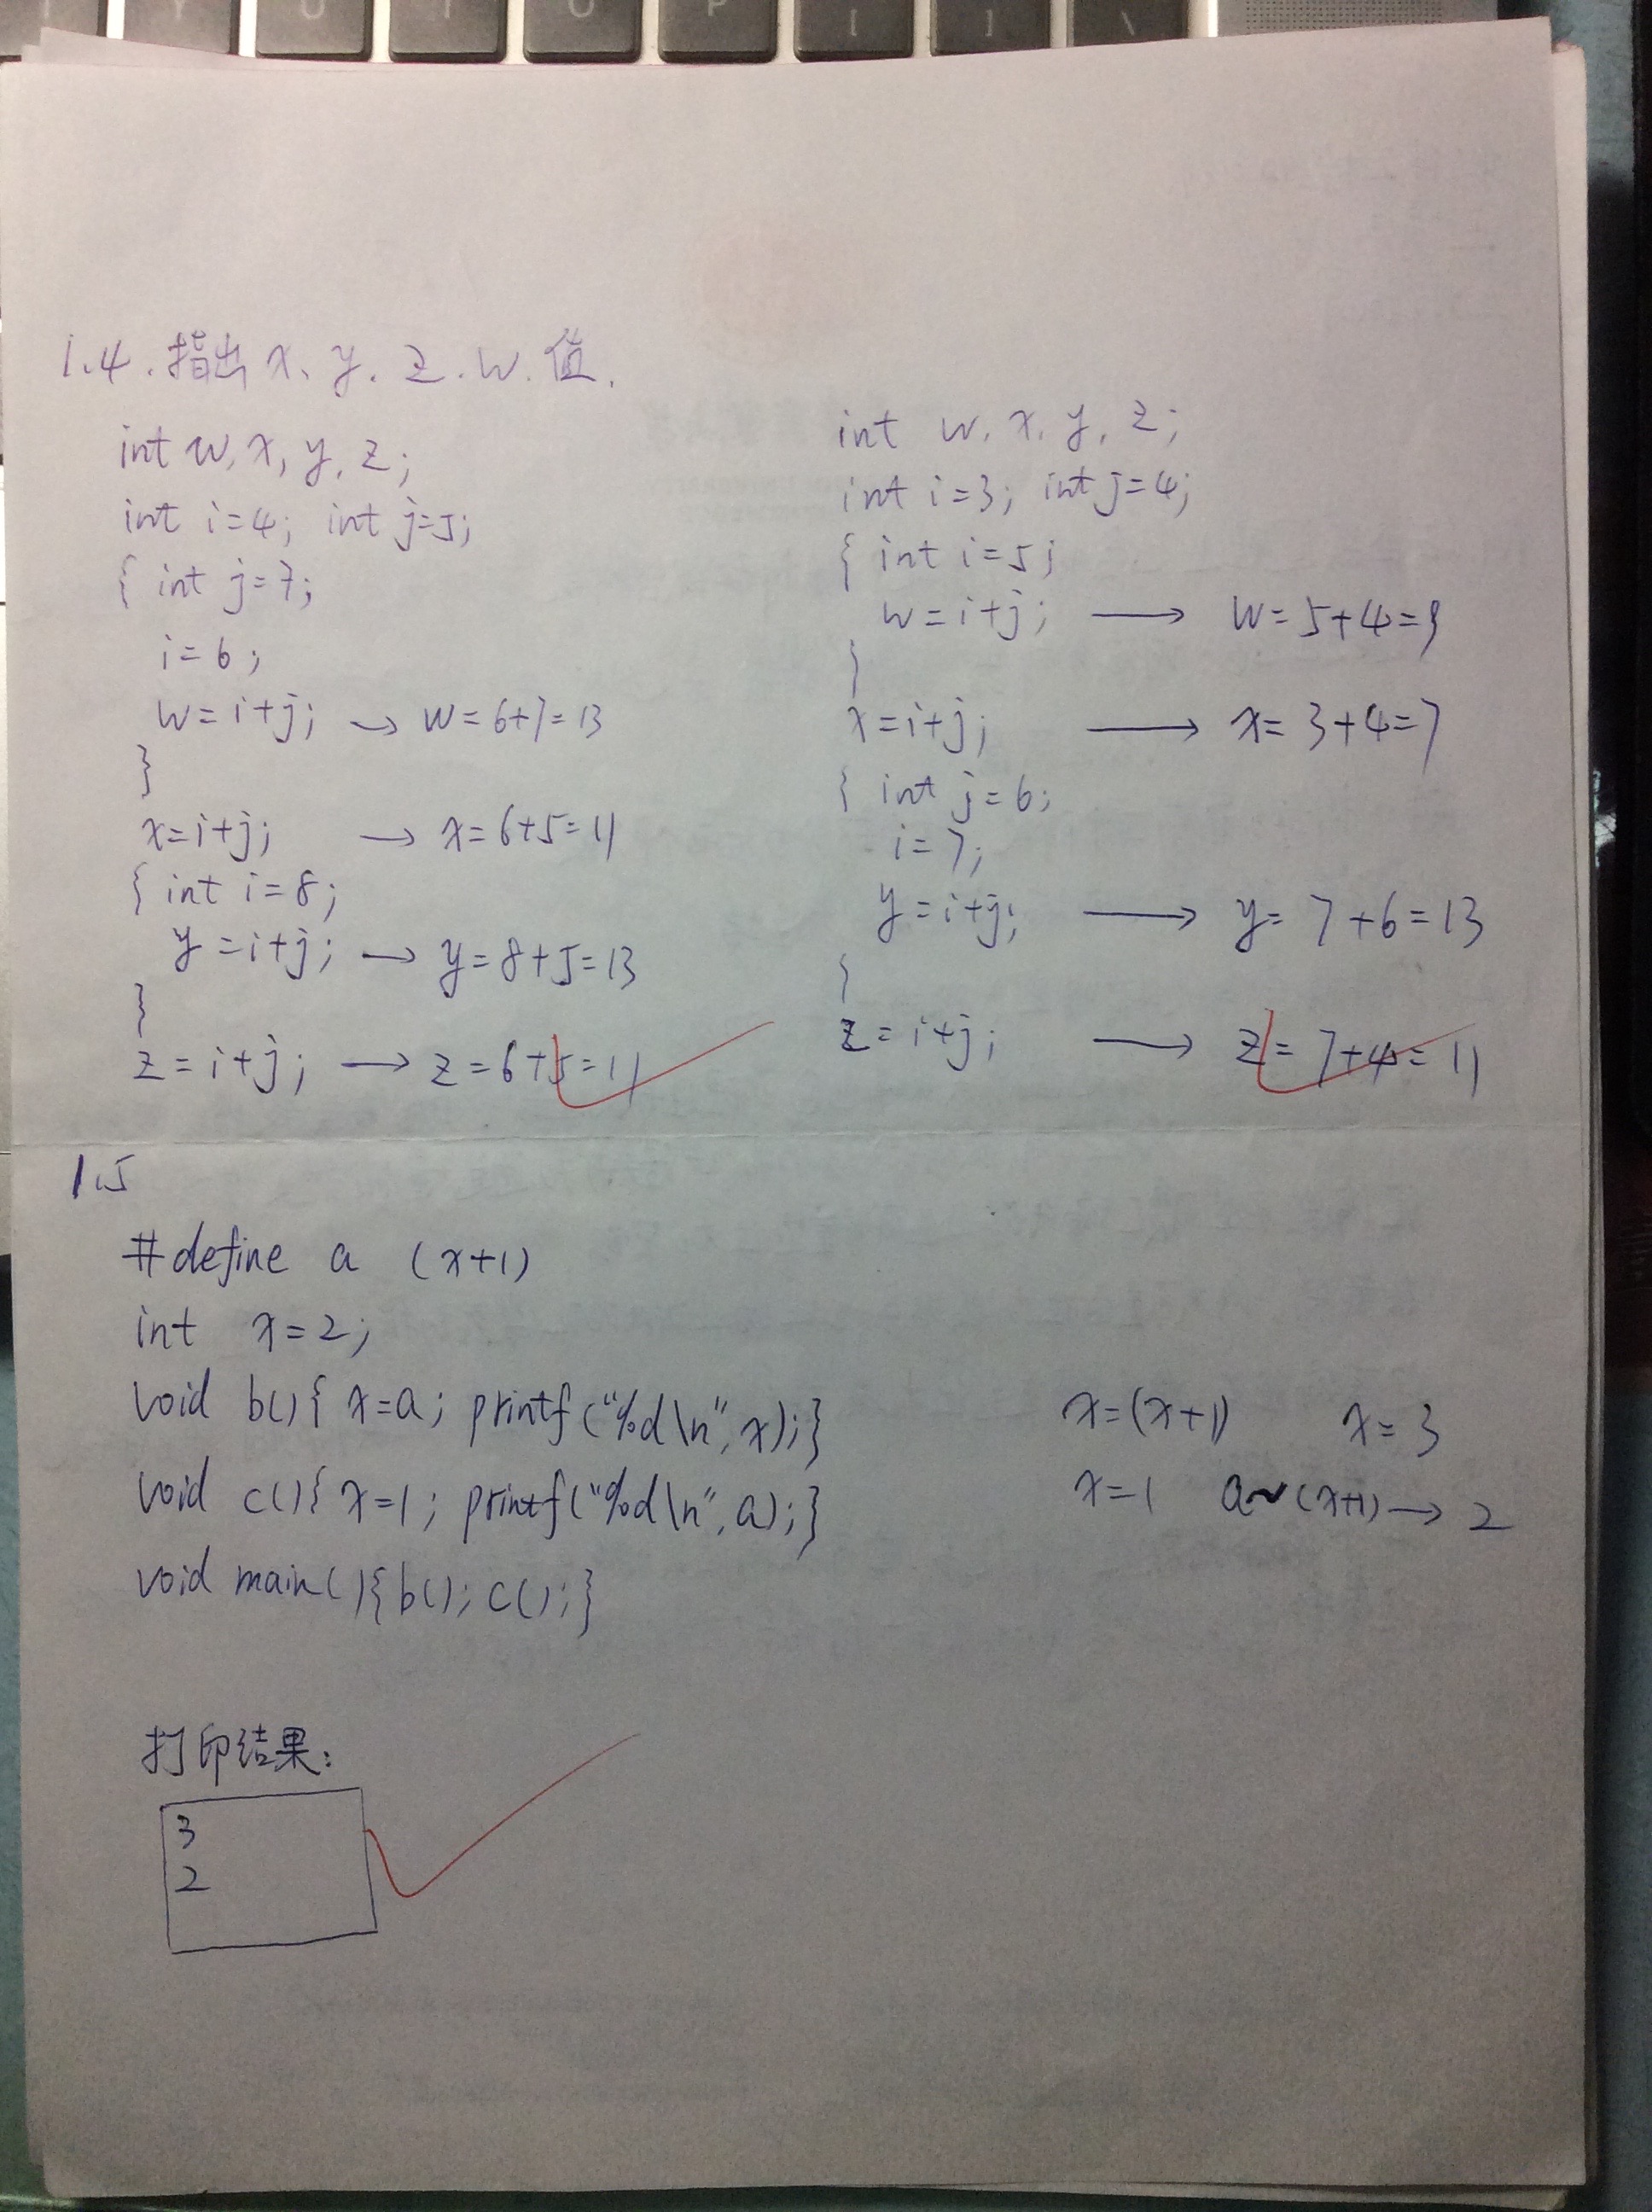 Y U I O P [ ] \
1.4.指出x、y、z.w.值.
int w, x, y, z;
int i=4; int j=5;
{ int j=7;
i=6;
w=i+j; → w=6+7=13
}
x=i+j; → x=6+5=11
{ int i=8;
y=i+j; → y=8+5=13
}
z=i+j; → z=6+5=11
int w, x, y, z;
int i=3; int j=4;
{ int i=5;
w=i+j; → w=5+4=9
}
x=i+j; → x=3+4=7
{ int j=6;
i=7;
y=i+j; → y=7+6=13
}
z=i+j; → z=7+4=11
1.5
#define a (x+1)
int x=2;
void b(){ x=a; printf("%d\n", x);} x=(x+1) x=3
void c(){ x=1; printf("%d\n", a);} x=1 a~(x+1)→2
void main(){b(); c();}
打印结果:
3
2